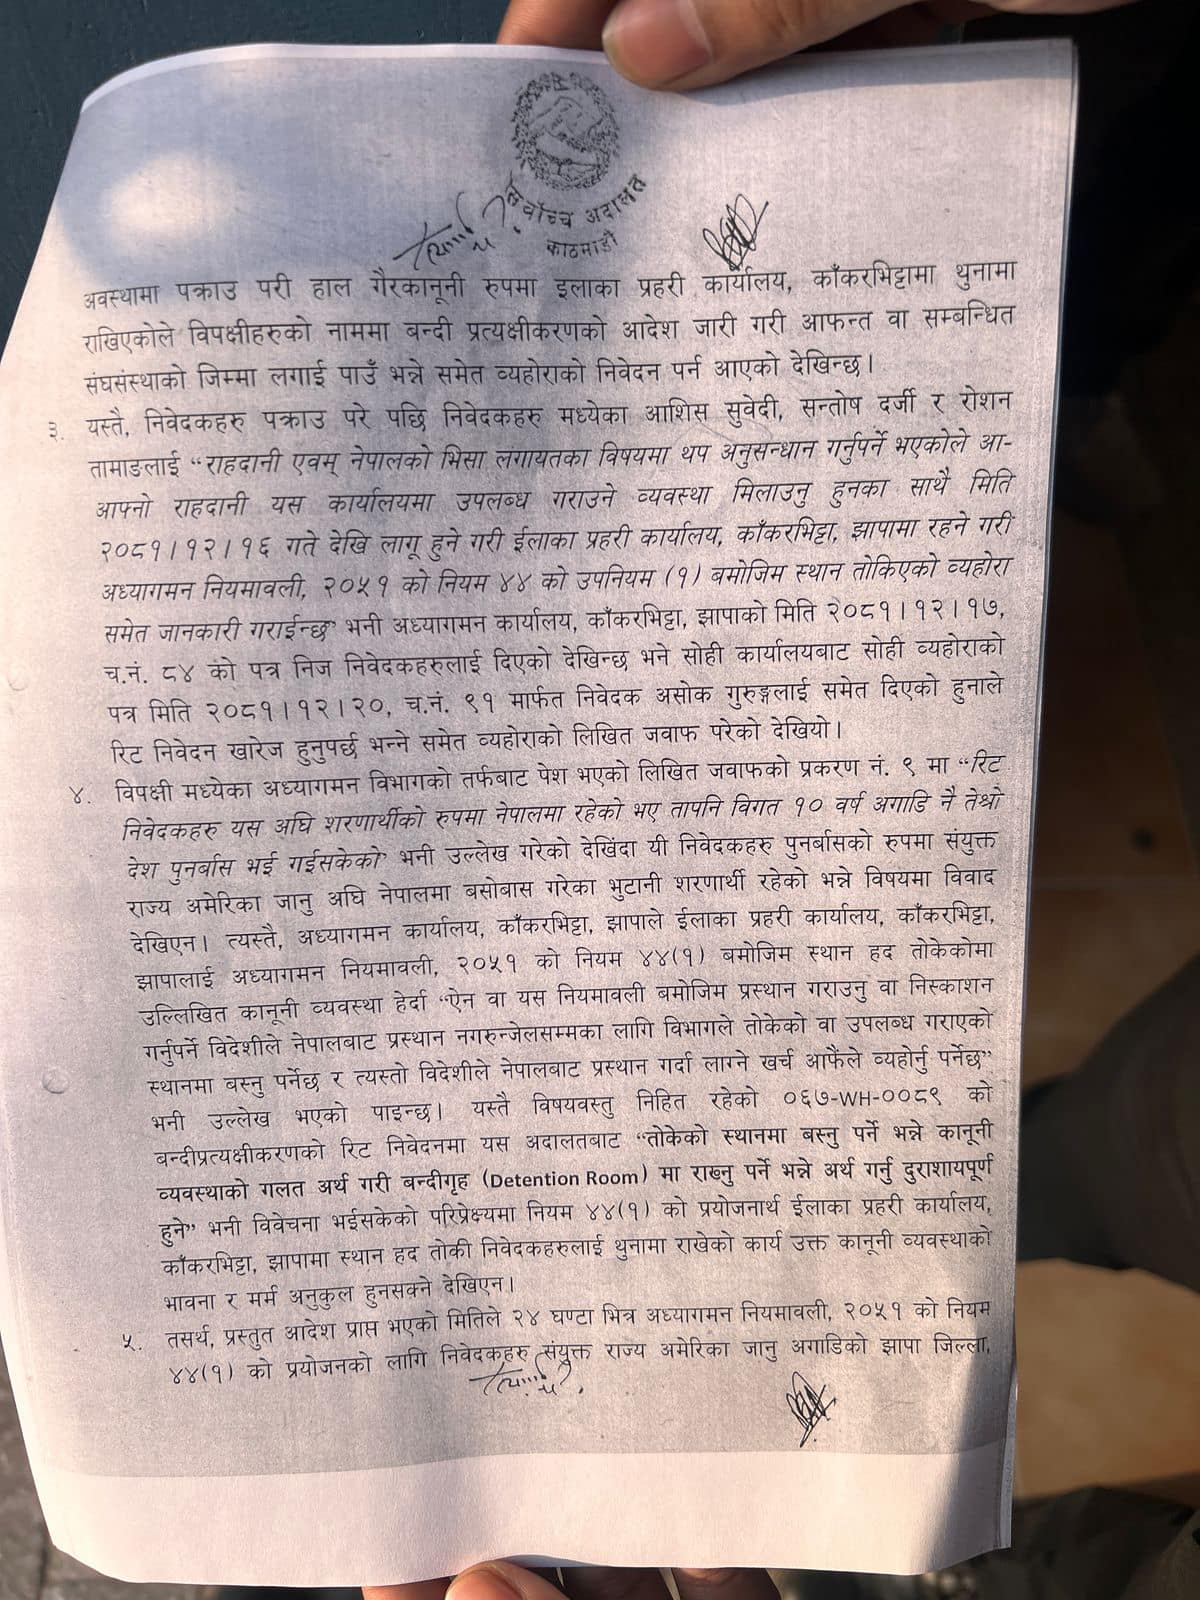 सर्वोच्च अदालत
काठमाडौं
अवस्थामा पक्राउ परी हाल गैरकानूनी रुपमा इलाका प्रहरी कार्यालय, काँकरभिट्टामा थुनामा
राखिएकोले विपक्षीहरुको नाममा बन्दी प्रत्यक्षीकरणको आदेश जारी गरी आफन्त वा सम्बन्धित
संघसंस्थाको जिम्मा लगाई पाउँ भन्ने समेत व्यहोराको निवेदन पर्न आएको देखिन्छ।
३. यस्तै, निवेदकहरु पक्राउ परे पछि निवेदकहरु मध्येका आशिस सुवेदी, सन्तोष दर्जी र रोशन
तामाङलाई “राहदानी एवम् नेपालको भिसा लगायतका विषयमा थप अनुसन्धान गर्नुपर्ने भएकोले आ-
आफ्नो राहदानी यस कार्यालयमा उपलब्ध गराउने व्यवस्था मिलाउनु हुनका साथै मिति
२०८१।१२।१६ गते देखि लागू हुने गरी ईलाका प्रहरी कार्यालय, काँकरभिट्टा, झापामा रहने गरी
अध्यागमन नियमावली, २०५१ को नियम ४४ को उपनियम (१) बमोजिम स्थान तोकिएको व्यहोरा
समेत जानकारी गराईन्छ” भनी अध्यागमन कार्यालय, काँकरभिट्टा, झापाको मिति २०८१।१२।१७,
च.नं. ८४ को पत्र निज निवेदकहरुलाई दिएको देखिन्छ भने सोही कार्यालयबाट सोही व्यहोराको
पत्र मिति २०८१।१२।२०, च.नं. ९१ मार्फत निवेदक असोक गुरुङ्गलाई समेत दिएको हुनाले
रिट निवेदन खारेज हुनुपर्छ भन्ने समेत व्यहोराको लिखित जवाफ परेको देखियो।
४. विपक्षी मध्येका अध्यागमन विभागको तर्फबाट पेश भएको लिखित जवाफको प्रकरण नं. ९ मा “रिट
निवेदकहरु यस अघि शरणार्थीको रुपमा नेपालमा रहेको भए तापनि विगत १० वर्ष अगाडि नै तेश्रो
देश पुनर्बास भई गईसकेको” भनी उल्लेख गरेको देखिंदा यी निवेदकहरु पुनर्बासको रुपमा संयुक्त
राज्य अमेरिका जानु अघि नेपालमा बसोबास गरेका भुटानी शरणार्थी रहेको भन्ने विषयमा विवाद
देखिएन। त्यस्तै, अध्यागमन कार्यालय, काँकरभिट्टा, झापाले ईलाका प्रहरी कार्यालय, काँकरभिट्टा,
झापालाई अध्यागमन नियमावली, २०५१ को नियम ४४(१) बमोजिम स्थान हद तोकेकोमा
उल्लिखित कानूनी व्यवस्था हेर्दा “ऐन वा यस नियमावली बमोजिम प्रस्थान गराउनु वा निस्काशन
गर्नुपर्ने विदेशीले नेपालबाट प्रस्थान नगरुन्जेलसम्मका लागि विभागले तोकेको वा उपलब्ध गराएको
स्थानमा बस्नु पर्नेछ र त्यस्तो विदेशीले नेपालबाट प्रस्थान गर्दा लाग्ने खर्च आफैंले व्यहोर्नु पर्नेछ”
भनी उल्लेख भएको पाइन्छ। यस्तै विषयवस्तु निहित रहेको ०६७-WH-००८९ को
बन्दीप्रत्यक्षीकरणको रिट निवेदनमा यस अदालतबाट “तोकेको स्थानमा बस्नु पर्ने भन्ने कानूनी
व्यवस्थाको गलत अर्थ गरी बन्दीगृह (Detention Room) मा राख्नु पर्ने भन्ने अर्थ गर्नु दुराशायपूर्ण
हुने” भनी विवेचना भईसकेको परिप्रेक्ष्यमा नियम ४४(१) को प्रयोजनार्थ ईलाका प्रहरी कार्यालय,
काँकरभिट्टा, झापामा स्थान हद तोकी निवेदकहरुलाई थुनामा राखेको कार्य उक्त कानूनी व्यवस्थाको
भावना र मर्म अनुकुल हुनसक्ने देखिएन।
५. तसर्थ, प्रस्तुत आदेश प्राप्त भएको मितिले २४ घण्टा भित्र अध्यागमन नियमावली, २०५१ को नियम
४४(१) को प्रयोजनको लागि निवेदकहरु संयुक्त राज्य अमेरिका जानु अगाडिको झापा जिल्ला,